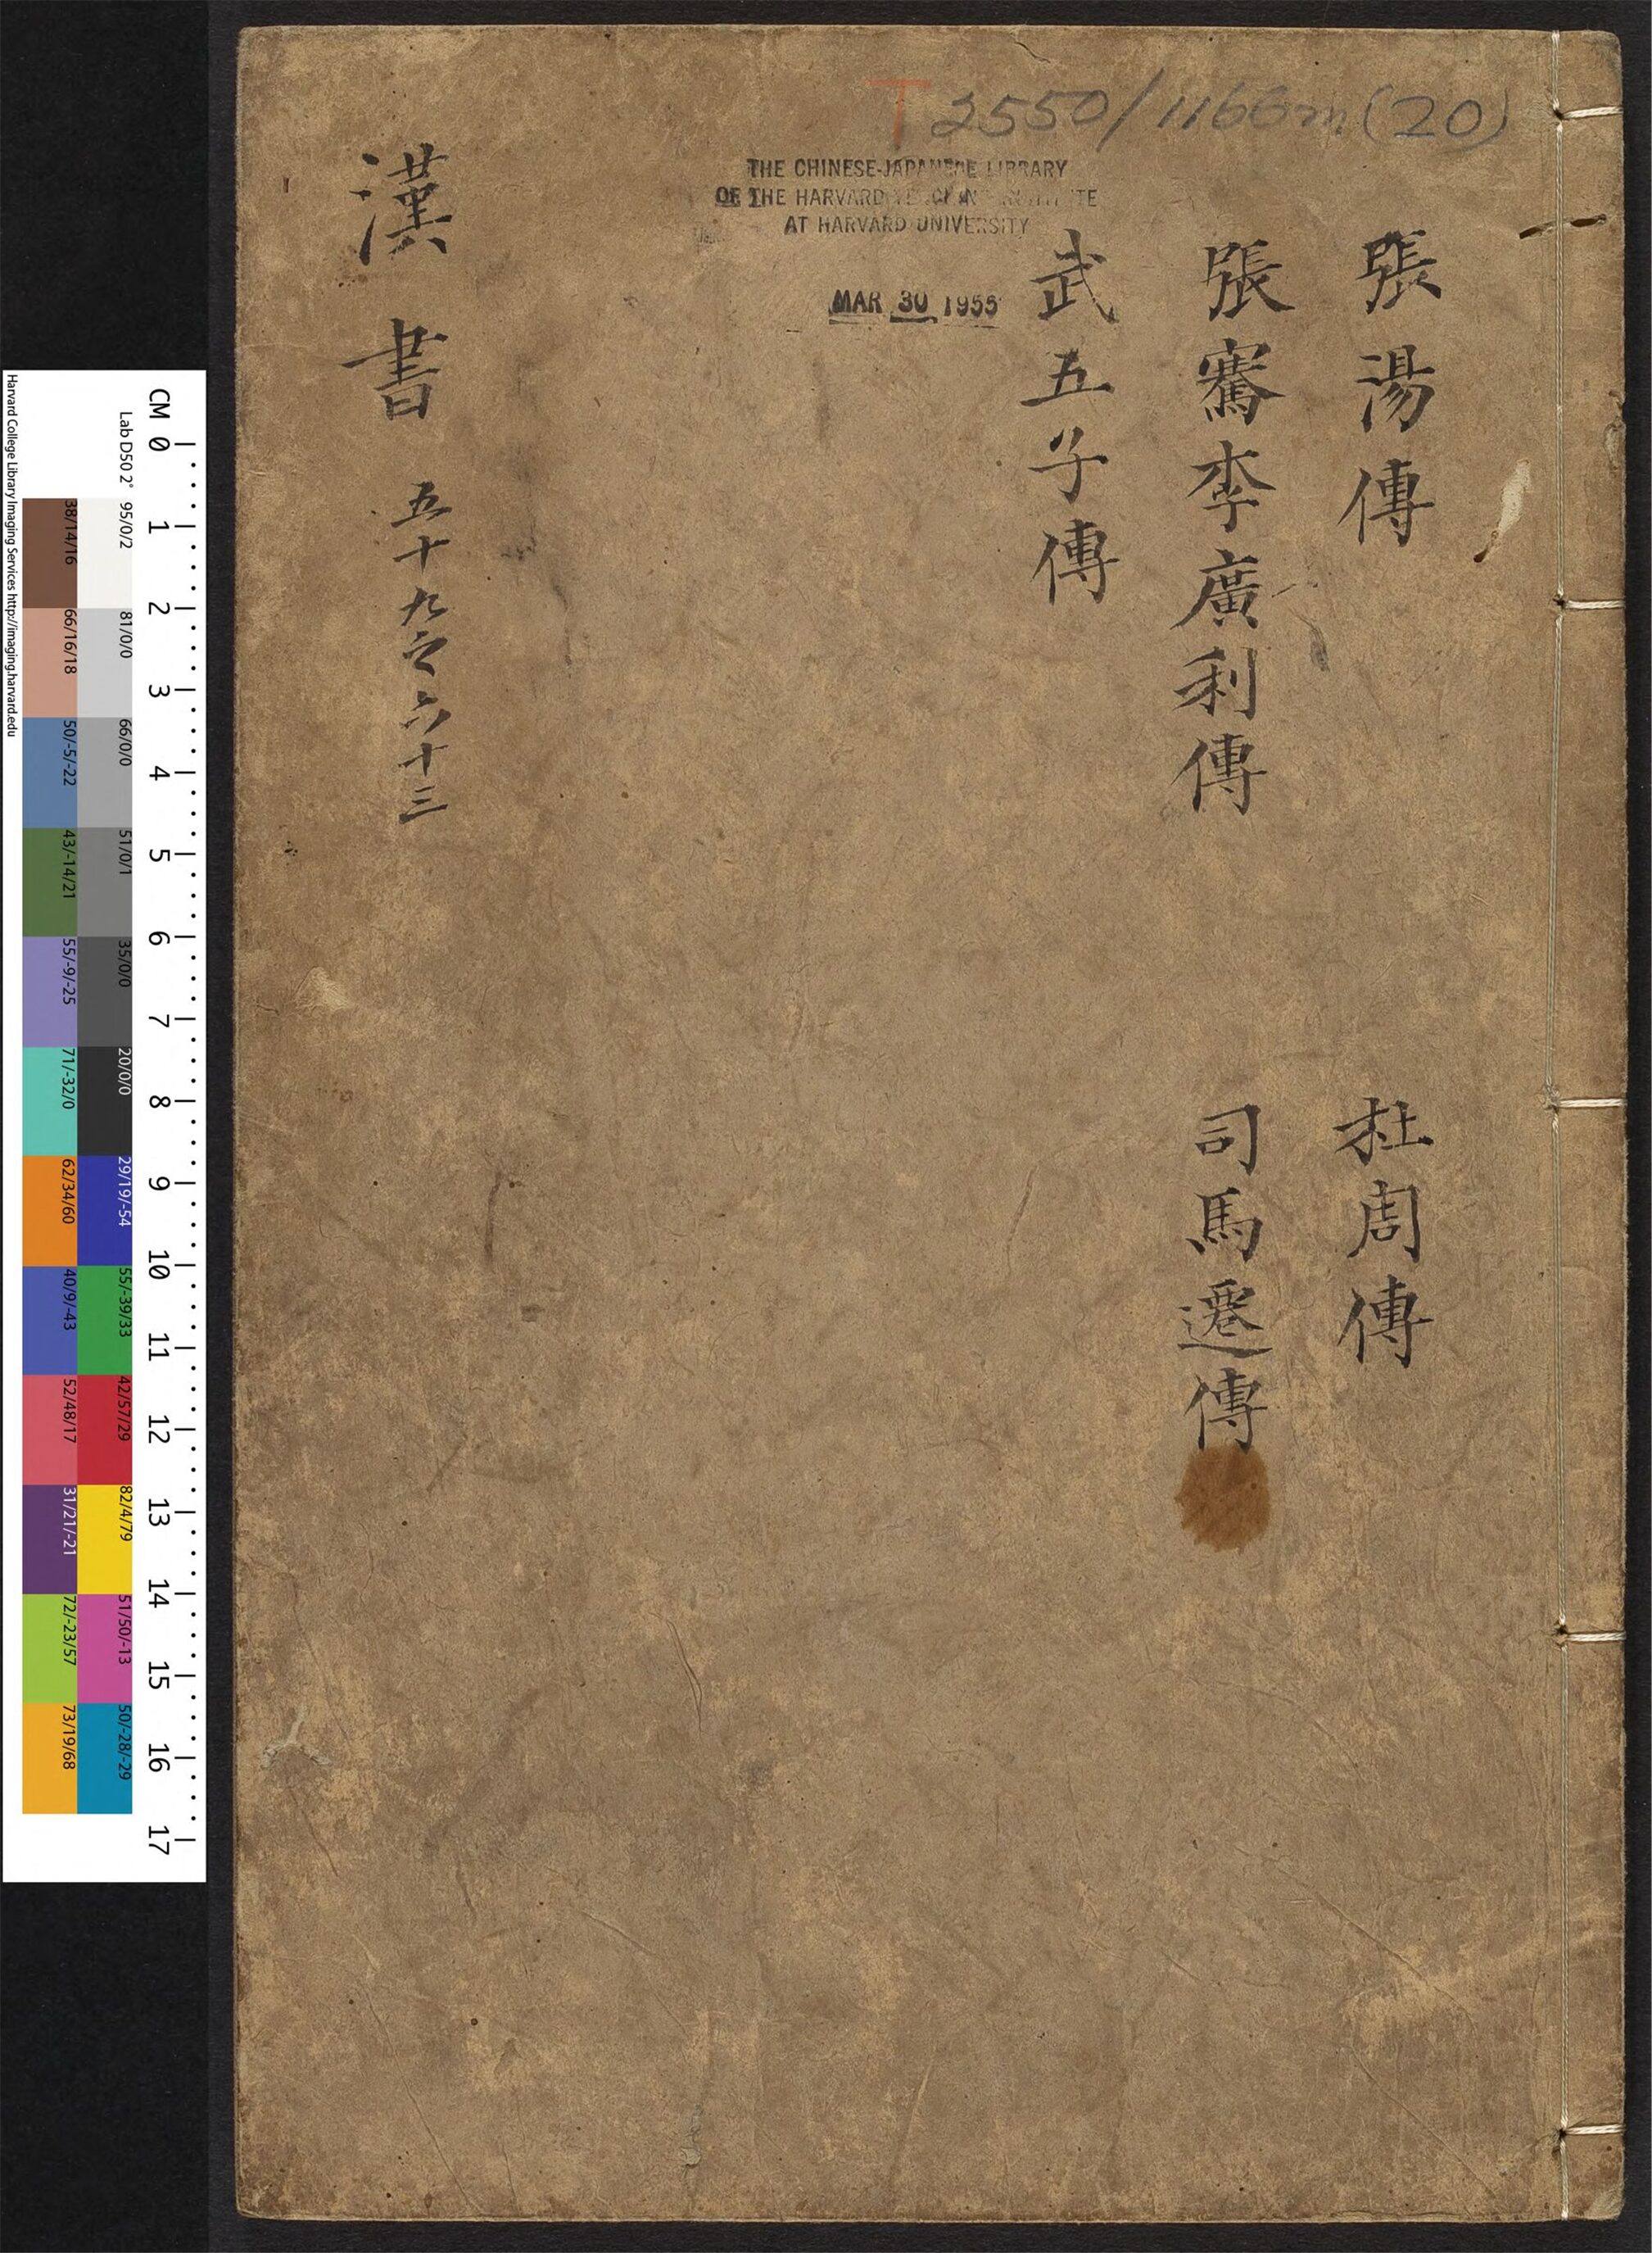 T 2550/1166m(20)
THE CHINESE-JAPANESE LIBRARY
OF THE HARVARD
AT HARVARD UNIVERSITY
MAR 30 1955
張湯傳
杜周傳
張騫李廣利傳
司馬遷傳
武五子傳
漢書 五十九之六十三
CM 0 1 2 3 4 5 6 7 8 9 10 11 12 13 14 15 16 17
Lab D50 2° 95/0/2 81/0/0 66/0/0 51/0/1 35/0/0 20/0/0 29/19/-54 55/-39/33 42/57/29 82/4/79 51/50/-13 50/-28/-29
38/14/16 66/16/18 50/-5/-22 43/-14/21 55/-9/-25 71/-32/0 62/34/60 40/9/-43 52/48/17 31/21/-21 72/-23/57 73/19/68
Harvard College Library Imaging Services http://imaging.harvard.edu